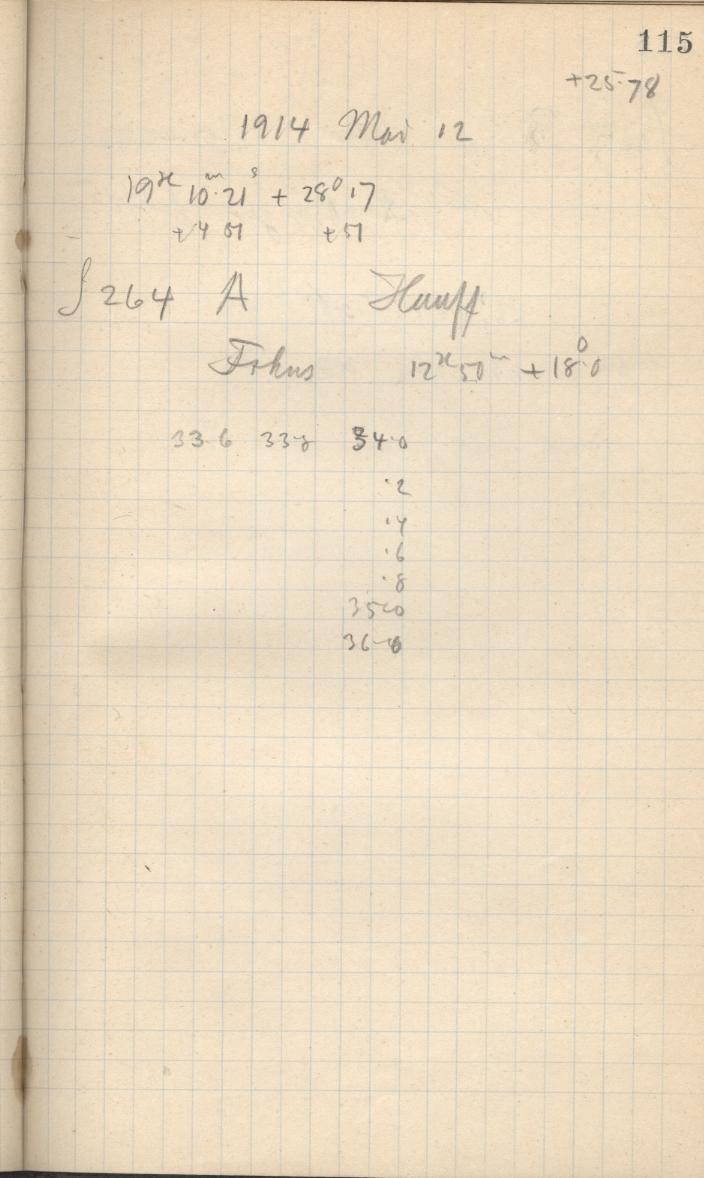 115
+25.78
1914 Mai 12
19h 10m.21s + 28°.17
+4 51 +51
S 264 A Hauff
Fokus 12h 50m +18°.0
33.6 33.8 34.0
.2
.4
.6
.8
35.0
36.0